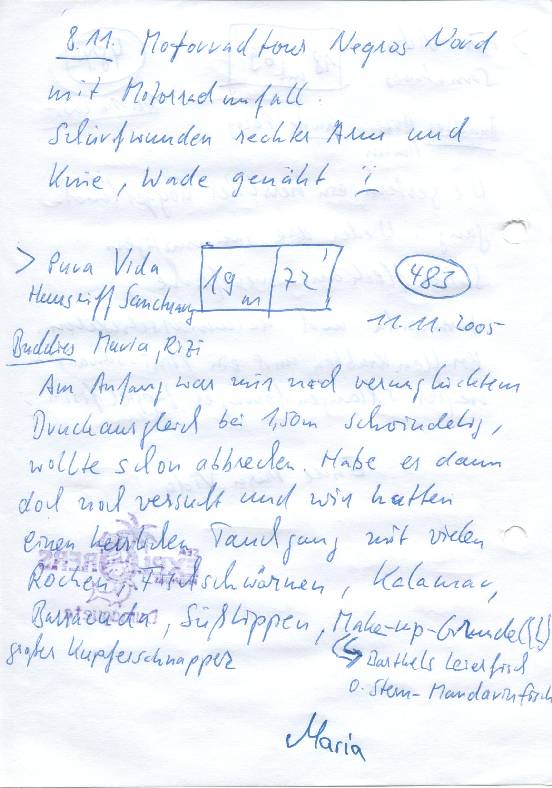 8.11. Motorradtour Negros Nord
mit Motorradunfall.
Schürfwunden rechter Arm und
Knie, Wade genäht
> Pura Vida
Hausriff Sanctuary
19m 72'
483
11.11.2005
Buddies Maria, Rizi
Am Anfang war mir nach verunglücktem
Druckausgleich bei 1,50m schwindelig,
wollte schon abbrechen. Habe es dann
doch noch versucht und wir hatten
einen herrlichen Tauchgang mit vielen
Rochen, Fischschwärmen, Kalamar,
Barrakuda, Süßlippen, Make-up-Grundel(!)
großer Kupferschnapper
Barthels Leierfisch
o. Stern-Mandarinfisch
Maria